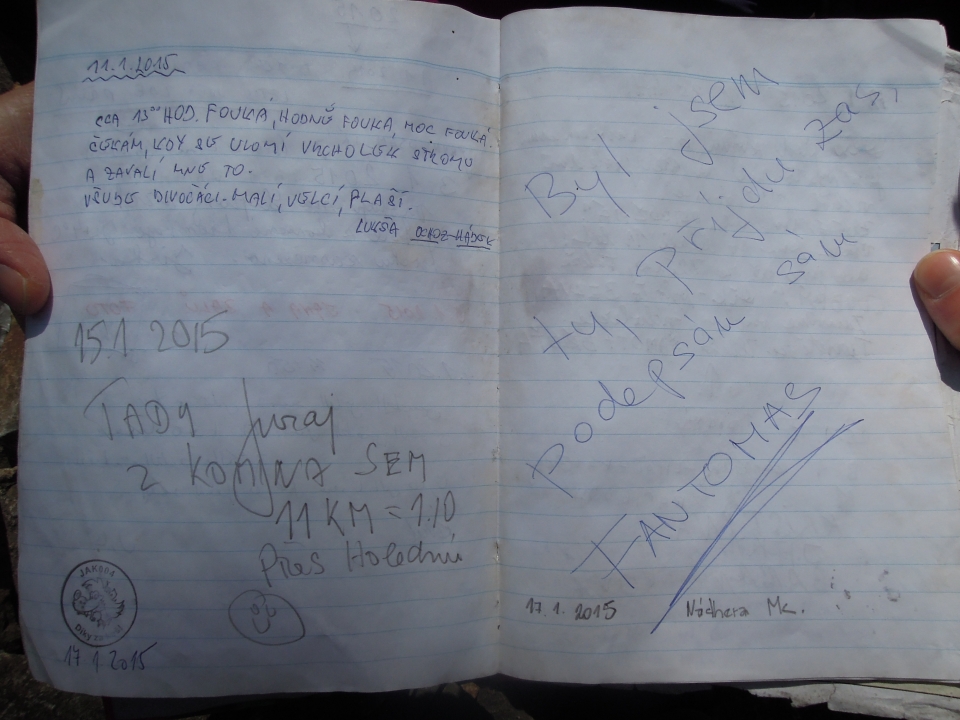 11.1.2015
CCA 13⁰⁰ HOD. FOUKÁ, HODNĚ FOUKÁ, MOC FOUKÁ.
ČEKÁM, KDY SE ULOMÍ VRCHOLEK STROMU
A ZAVALÍ MNĚ TO.
VŠUDE DIVOČÁCI - MALÍ, VELCÍ, PLAŠÍ.
LUKŠA OCHOZ-HÁDEK
15.1.2015
TADY Juraj
Z KOMÍNA SEM
11 KM = 1.10
Přes Holednú
JAKODA
17.1.2015
Byl jsem
tu, Přijdu zas,
podepsán sám
FANTOMAS
17.1.2015 Nádhera Mk.